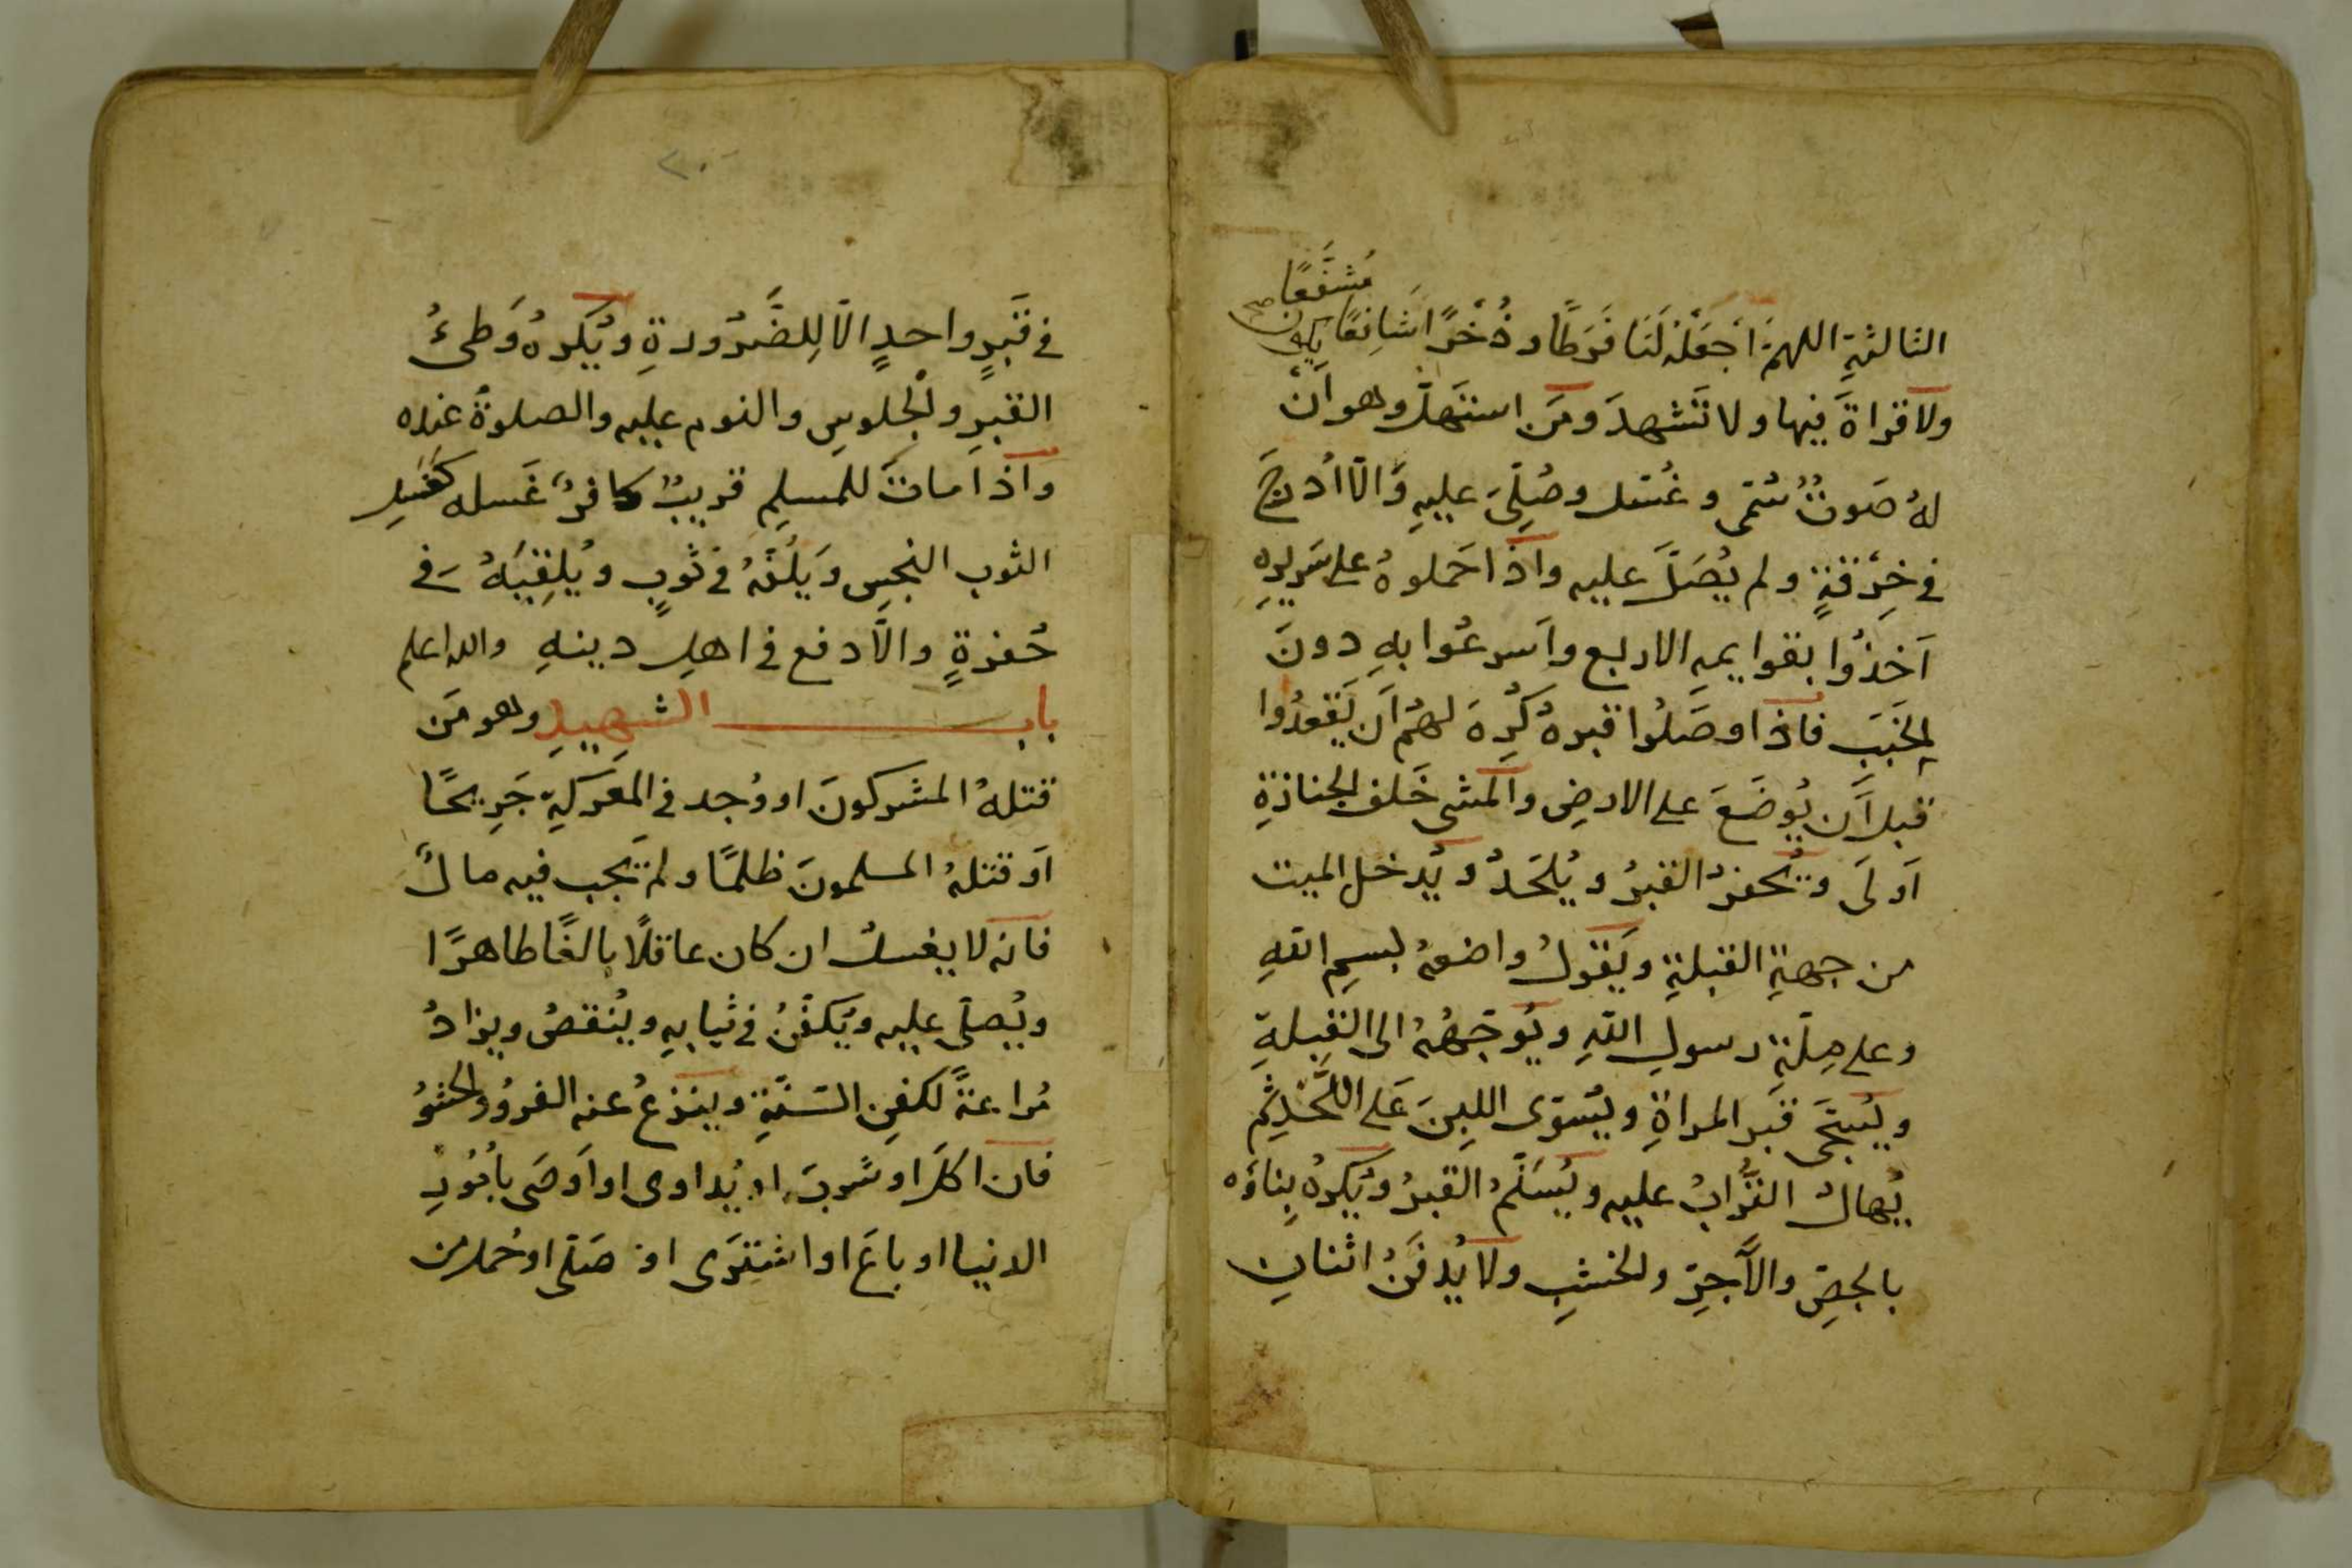 مُشَفَّعًا
الثالثةِ اللهمَّ اجعَلْهُ لَنَا فَرَطًا وذُخْرًا شَافِعًا
ولا قراةَ فيها ولا تَشهدَ ومَن استَهلّ وهو ان
لهُ صَوتٌ سُمّى وغُسّل وصُلِّىَ عليهِ وَالّا اُدرِجَ
فى خِرْقةٍ ولم يُصَلَّ عليه واذا حَملوهُ على سَريرِهِ
اَخذُوا بقوايمه الاربع واَسرعُوا بهِ دونَ
الخَبَبِ فاذا وصَلُوا قبرهُ كُرِهَ لهُم اَن يَقعدُوا
قبل اَن يُوضَعَ على الارضِ والمشى خَلف الجنازةِ
اَولَى ويُحفرُ القبرُ ويُلحَدُ ويُدخل الميت
من جهةِ القبلةِ ويَقولُ واضعهُ بسمِ اللهِ
وعلى مِلّةِ رسولِ اللهِ ويُوَجّهُهُ الى القِبلةِ
ويُسَجَّى قبَر المراةِ ويُسَوّى اللبِنَ عَلى اللَّحْدِ ثم
يُهالُ التُّرابُ عليه ويُسَنَّمُ القبرُ ويُكرهُ بِناؤه
بالجصِّ والآجرِّ والخشبِ ولا يُدفَنُ اثنانِ
٢٠
فى قَبرٍ واحدٍ الّا لِلضَّرُورةِ ويُكرهُ وَطىُ
القبرِ والْجلوسِ والنوم عليه والصلوةُ عنده
واذا ماتَ للمسلِم قريبٌ كافرٌ غَسله كغسلِ
الثوب النجسِ ويَلُفّهُ فى ثوبٍ ويُلقِيَهُ فى
حُفرةٍ والّا دفع فى اهلِ دينهِ والله اعلم
باب الشهيدِ وهو مَن
قتلهُ المشركونَ او وُجد فى المَعركةِ جَرِيحًا
اَو قتلهُ المسلمونَ ظلمًا ولم يَجب فيه مالٌ
فانه لا يغسلُ ان كان عاقلًا بالغًا طاهرًا
ويُصلّى عليه ويُكفّنُ فى ثيابِهِ ويُنقصُ ويزادُ
مُراعةً لكفنِ السّنّةِ وينزعُ عنه الفروُ والحشوُ
فان اكلَ او شَربَ او يُداوى او اَوصَى بأُمُورِ
الدنيا او باعَ او اشترَى او صَلّى او حُمل من